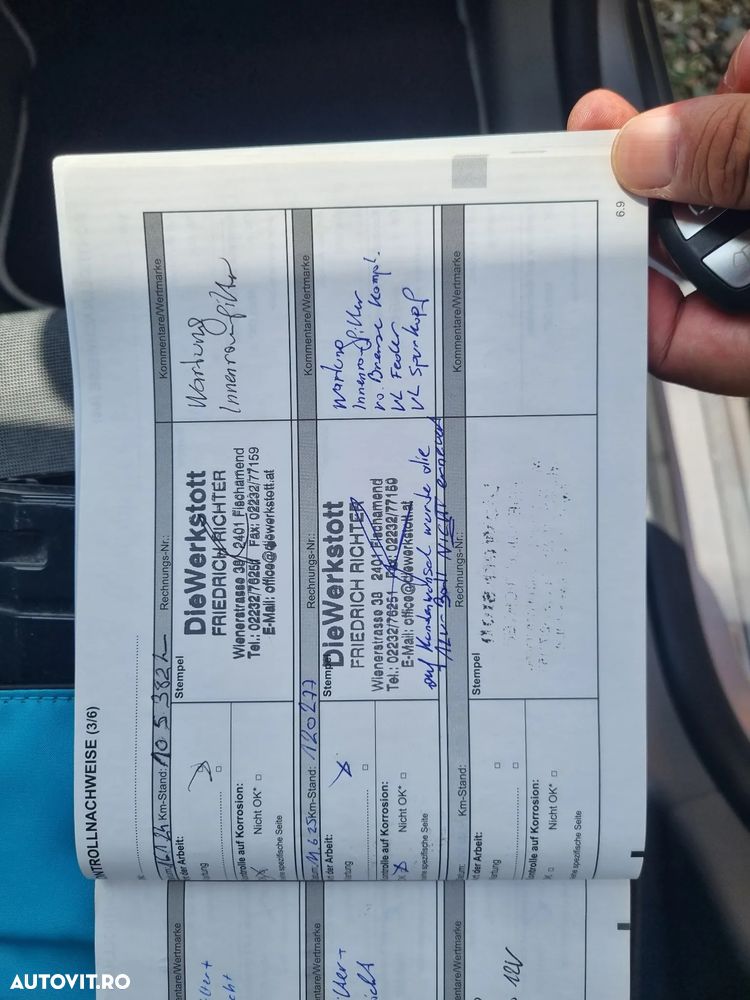 NTROLLNACHWEISE (3/6)
Km-Stand: 105382
Rechnungs-Nr.:
Kommentare/Wertmarke
der Arbeit:
Stempel
DieWerkstott
FRIEDRICH RICHTER
Wienerstrasse 38 2401 Fischamend
Tel.: 02232/76251 Fax: 02232/77159
E-Mail: office@diewerkstott.at
Wartung
Innenraumfilter
artung
ontrolle auf Korrosion:
Nicht OK*
spezifische Seite
11.6.25 Km-Stand: 120277
Rechnungs-Nr.:
Kommentare/Wertmarke
t der Arbeit:
Stempel
DieWerkstott
FRIEDRICH RICHTER
Wienerstrasse 38 2401 Fischamend
Tel.: 02232/76251 Fax: 02232/77159
E-Mail: office@diewerkstott.at
auf Kundenwunsch wurde die
12V-Batt. NICHT erneuert
Wartung
Innenraumfilter
vo. Bremse kompl.
VL Feder
VL Spurkopf
artung
ontrolle auf Korrosion:
Nicht OK*
spezifische Seite
Km-Stand:
Rechnungs-Nr.:
Kommentare/Wertmarke
t der Arbeit:
Stempel
artung
ontrolle auf Korrosion:
Nicht OK*
spezifische Seite
6.9
entare/Wertmarke
entare/Wertmarke
entare/Wertmarke
12V
AUTOVIT.RO